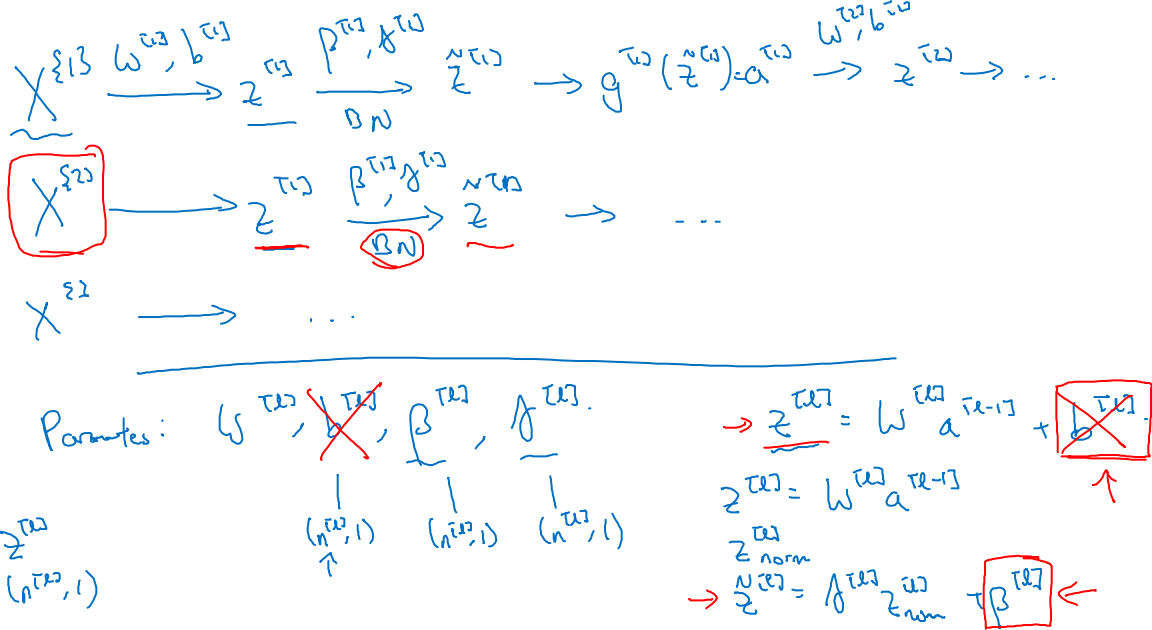 X^{1} W^[1], b^[1] → z^[1] β^[1], γ^[1] → BN z̃^[1] → g^[1](z̃^[1]) = a^[1] W^[2], b^[2] → z^[2] → ...
X^{2} → z^[1] β^[1], γ^[1] → BN z̃^[1] → ...
X^{} → ...
Parametes: W^[l], b^[l], β^[l], γ^[l].
(n^[l], 1) (n^[l], 1) (n^[l], 1)
z^[l]
(n^[l], 1)
→ z^[l] = W^[l] a^[l-1] + b^[l]
z^[l] = W^[l] a^[l-1]
z^[l] norm
→ z̃^[l] = γ^[l] z^[l] norm + β^[l] ←